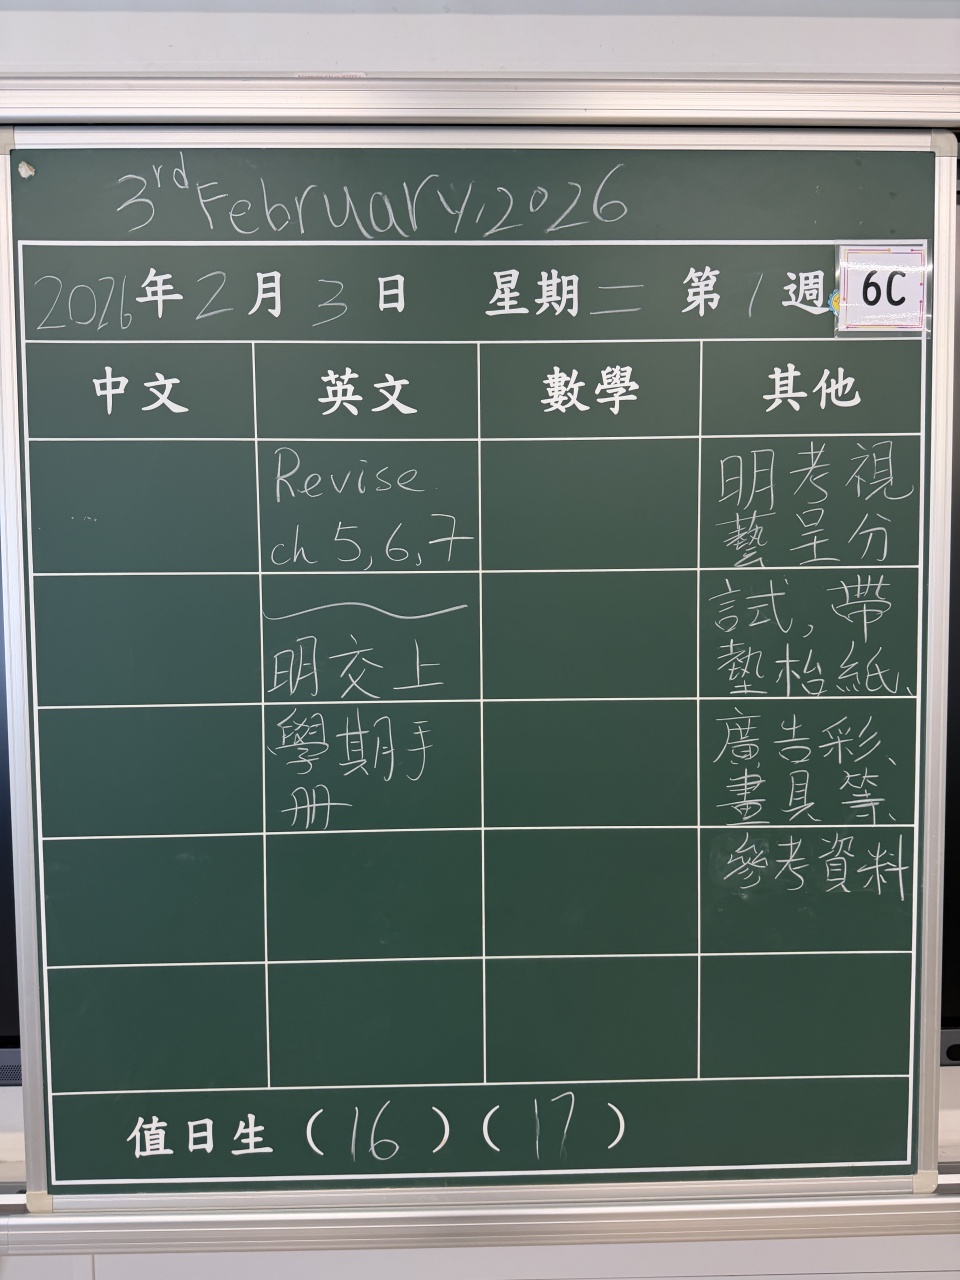 3rd February, 2026
2026年2月3日 星期二 第1週 6C
中文 英文 數學 其他
Revise
ch 5, 6, 7
明交上
學期手
冊
明考視
藝呈分
試, 帶
墊枱紙、
廣告彩、
畫具等、
參考資料
值日生 (16) (17)